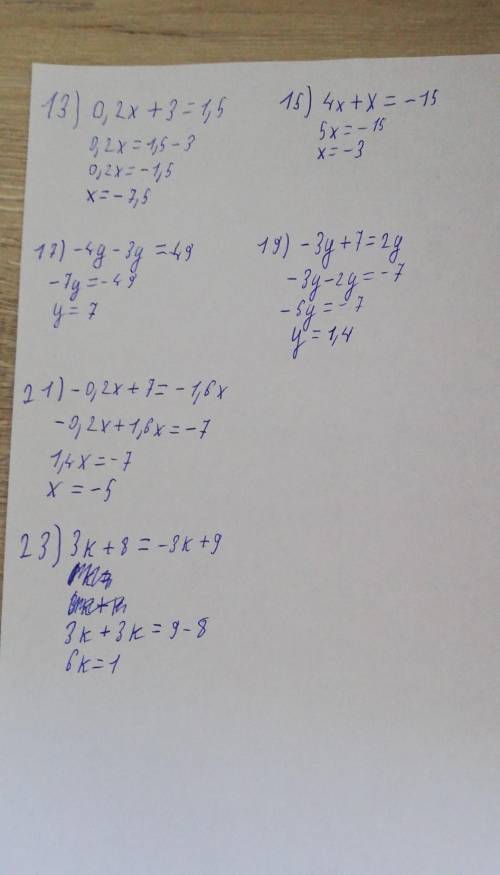 13) 0,2x + 3 = 1,5
0,2x = 1,5 - 3
0,2x = -1,5
x = -7,5
15) 4x + x = -15
5x = -15
x = -3
17) -4y - 3y = -49
-7y = -49
y = 7
19) -3y + 7 = 2y
-3y - 2y = -7
-5y = -7
y = 1,4
21) -0,2x + 7 = -1,6x
-0,2x + 1,6x = -7
1,4x = -7
x = -5
23) 3k + 8 = -3k + 9
3k + 3k = 9 - 8
6k = 1